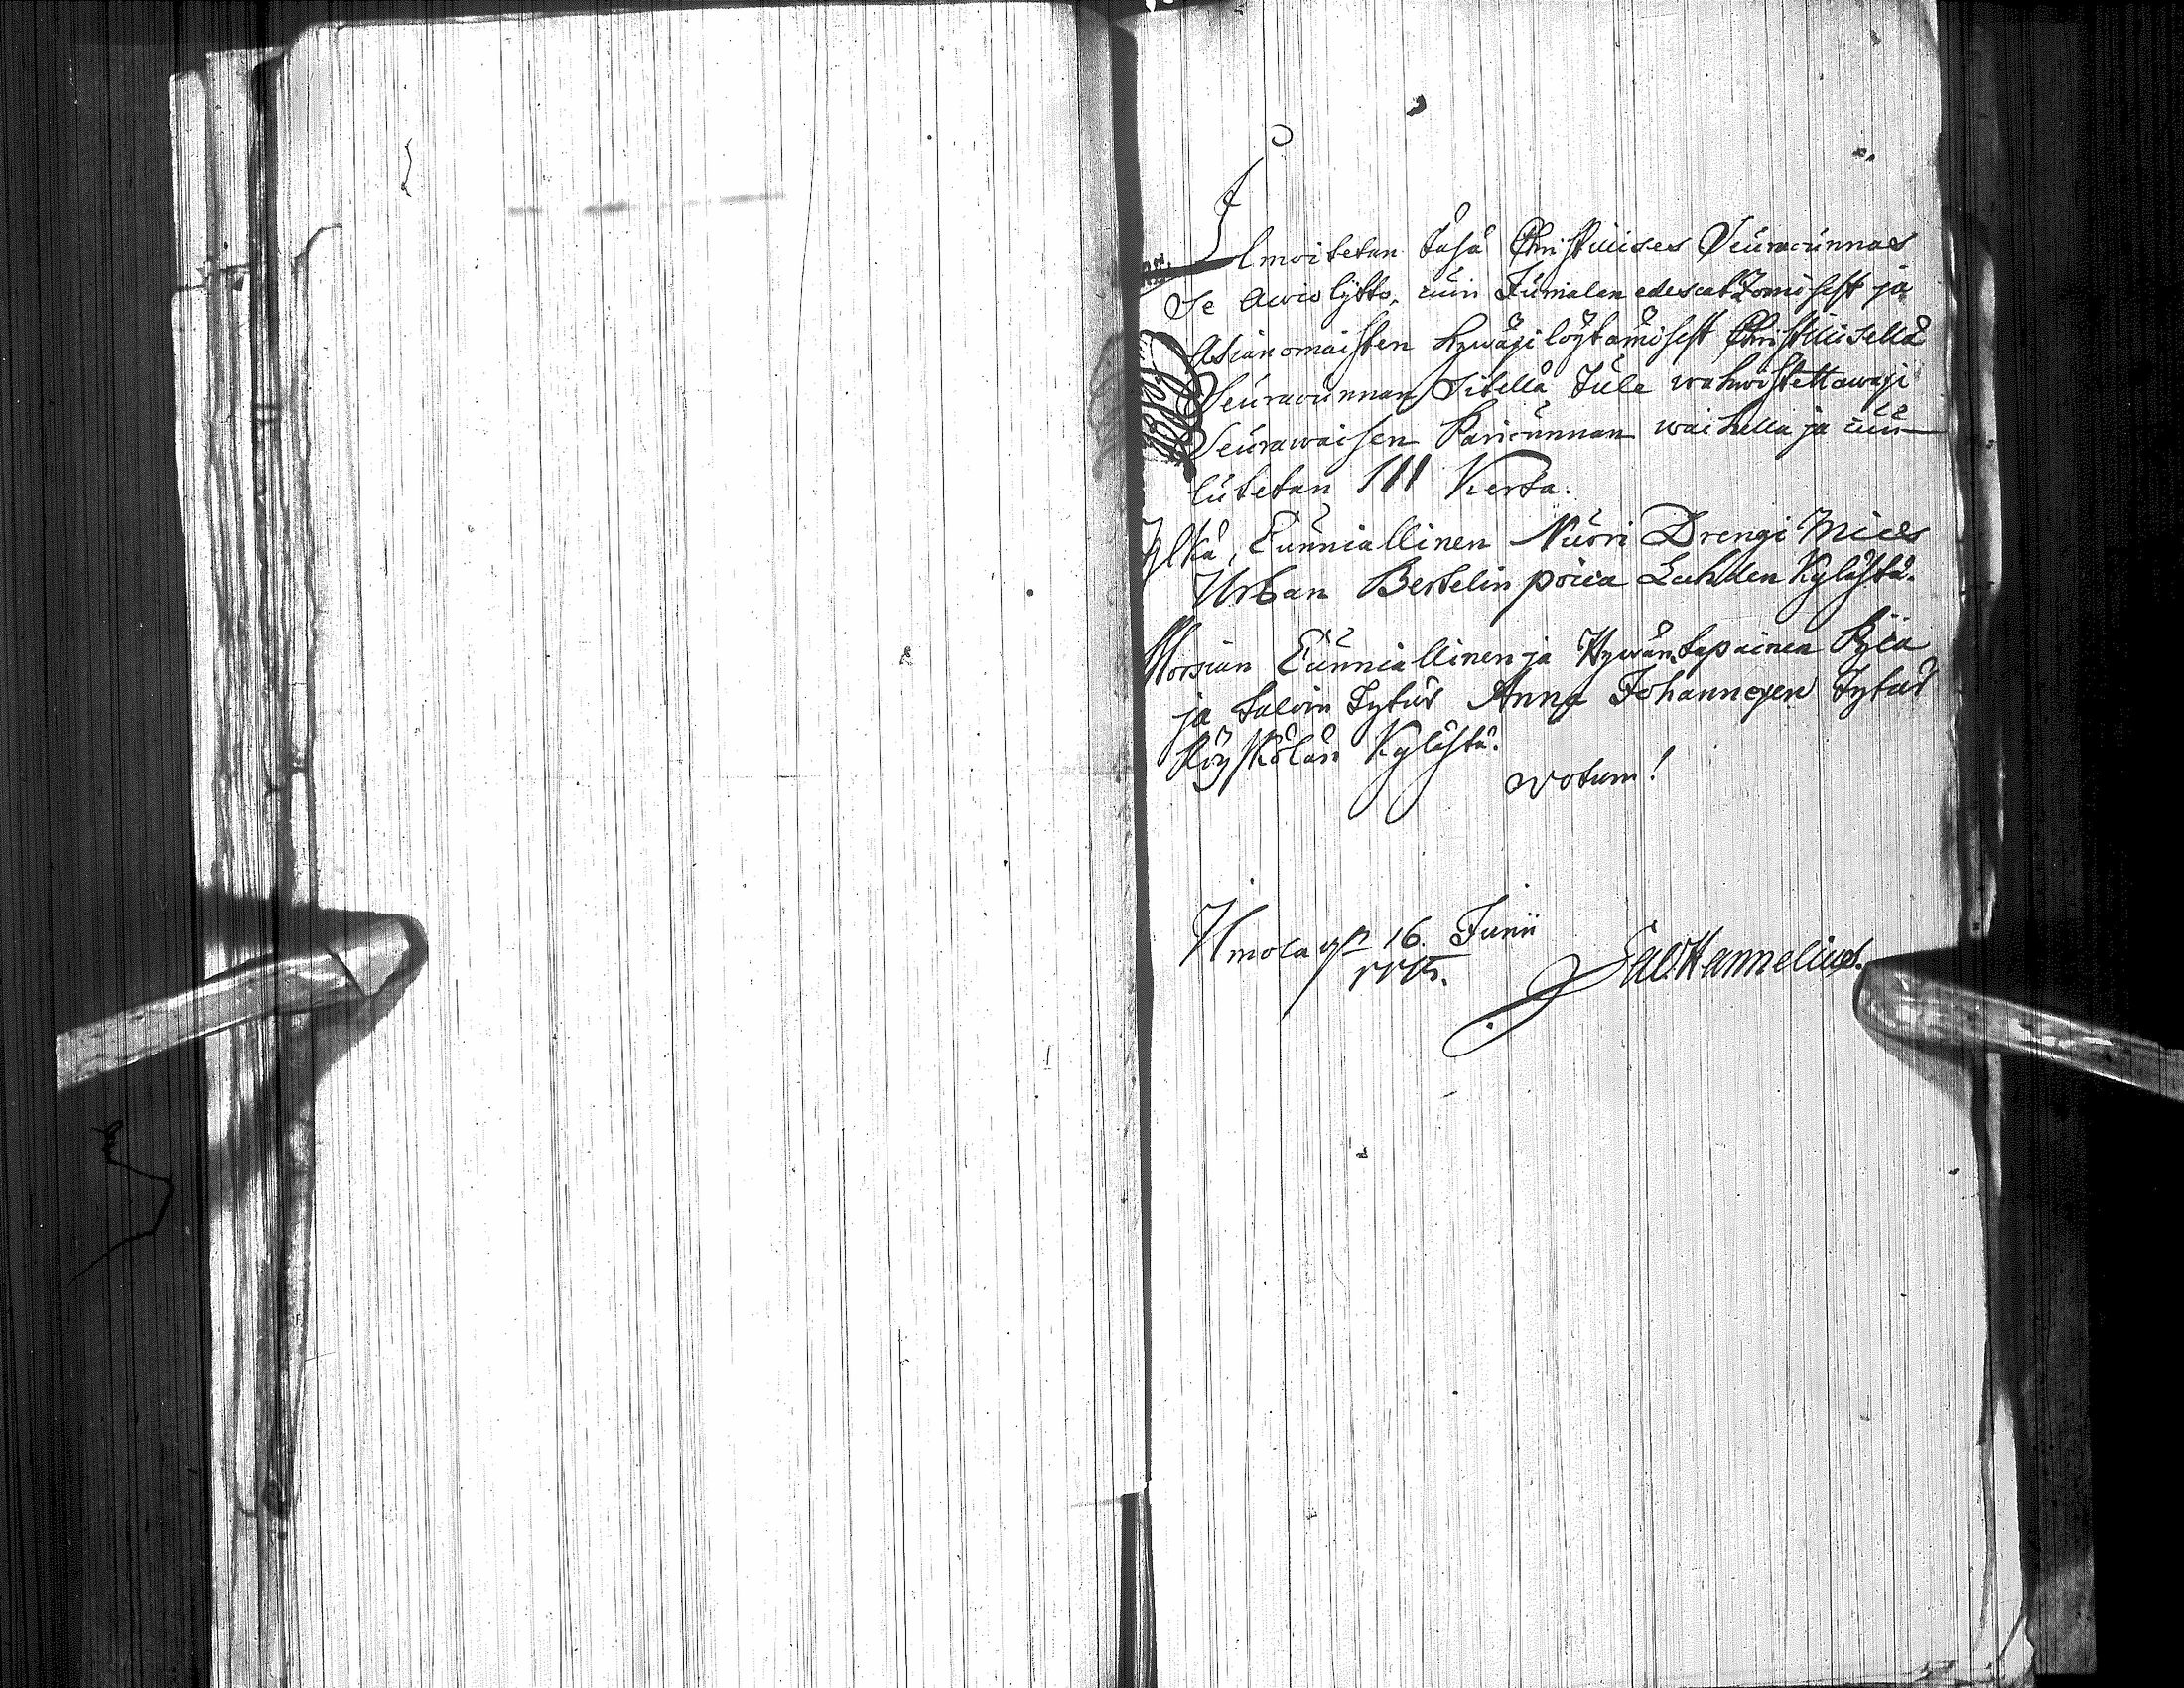 Ilmoitetan täsä Christilises Seuracunnas
Se Awio lijtto, cuin Jumalan edescatzomisest ja
Asianomaisten hywäxi löytämisest Christilisellä
Seuracunnan Sitellä tule wahwistettawaxi
Seurawaisen Paricunnan waihella ja cuu-
lutetan III Kerta.
Ylkä, Cunniallinen Nuori Drengi Mies
Urban Bertelin poica Lahden Kylästä.
Morsian Cunniallinen ja Hywän tapainen Pijca
ja taloin tytär Anna Johannexen tytär
Röyskölän Kylästä.
Votum!
Ilmola 16. Junii
Hannelius.